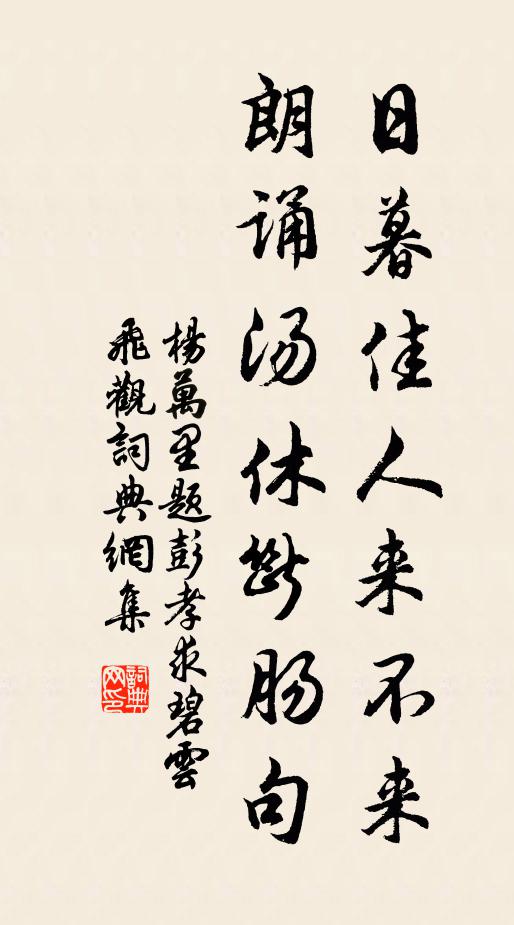 日暮佳人来不来
朗诵汤休断肠句
楊萬里题彭孝求碧雲
飛觀詞典網集
詞典网印